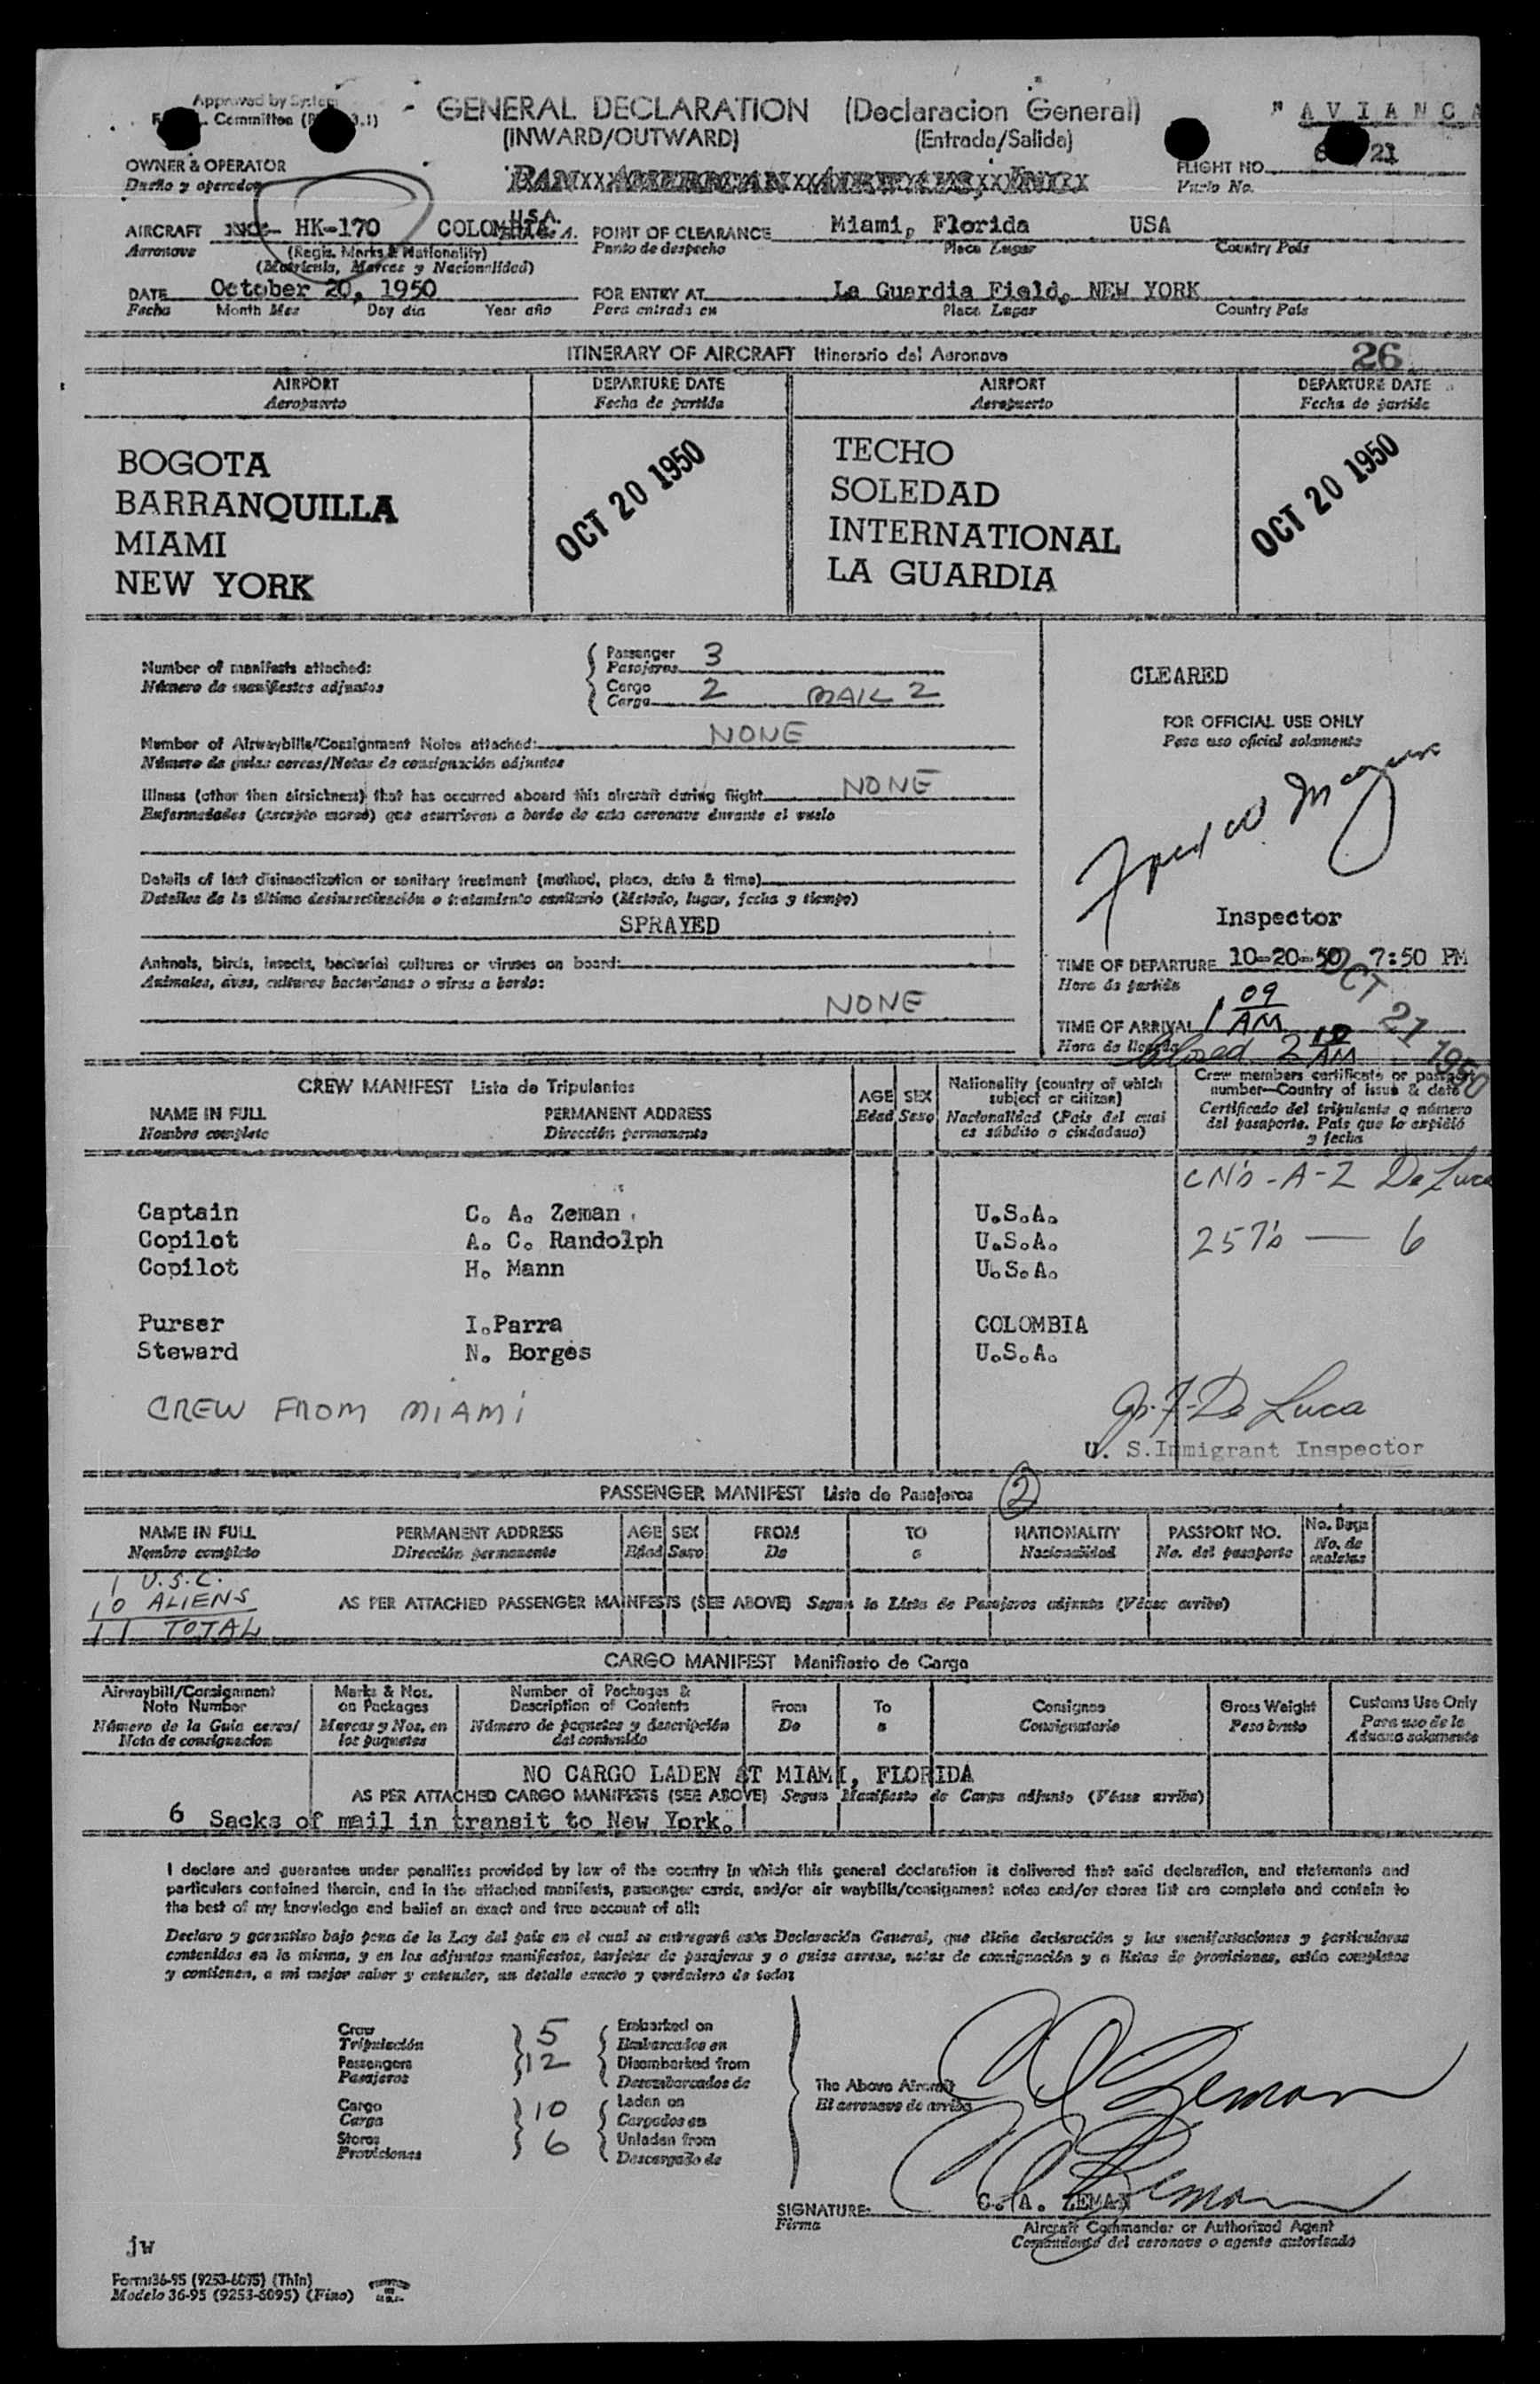 Approved by System
Committee
GENERAL DECLARATION (Declaracion General)
(INWARD/OUTWARD) (Entrada/Salida)
" AVIANCA
OWNER & OPERATOR
Dueño y operador
PAN AMERICAN AIRWAYS, INC.
FLIGHT NO. 21
Vuelo No.
AIRCRAFT HK-170 COLOMBIA U.S.A. POINT OF CLEARANCE Miami, Florida USA
Aeronave (Regis. Marks & Nationality) Punto de despacho Place Lugar Country País
(Matrícula, Marcas y Nacionalidad)
DATE October 20, 1950 FOR ENTRY AT La Guardia Field, NEW YORK
Fecha Month Mes Day día Year año Para entrada en Place Lugar Country País
ITINERARY OF AIRCRAFT Itinerario del Aeronave 26
AIRPORT DEPARTURE DATE AIRPORT DEPARTURE DATE
Aeropuerto Fecha de partida Aeropuerto Fecha de partida
BOGOTA TECHO
BARRANQUILLA SOLEDAD
MIAMI INTERNATIONAL
NEW YORK LA GUARDIA
OCT 20 1950 OCT 20 1950
Number of manifests attached: Passenger 3
Número de manifiestos adjuntos Pasajeros
Cargo 2 MAIL 2
Carga
Number of Airwaybills/Consignment Notes attached: NONE
Número de guías aereas/Notas de consignación adjuntos
Illness (other then airsickness) that has occurred aboard this aircraft during flight NONE
Enfermedades (excepto mareo) que ocurrieron a bordo de esta aeronave durante el vuelo
Details of last disinsectization or sanitary treatment (method, place, date & time)
Detalles de la última desinsectización o tratamiento sanitario (Metodo, lugar, fecha y tiempo)
SPRAYED
Animals, birds, insects, bacterial cultures or viruses on board:
Animales, aves, culturas bacterianas o virus a bordo:
NONE
CLEARED
FOR OFFICIAL USE ONLY
Para uso oficial solamente
Inspector
TIME OF DEPARTURE 10-20-50 7:50 PM
Hora de partida
TIME OF ARRIVAL 1 09 AM
Hora de llegada
OCT 21 1950
CREW MANIFEST Lista de Tripulantes
NAME IN FULL PERMANENT ADDRESS
Nombre completo Dirección permanente
AGE SEX
Edad Sexo
Nationality (country of which
subject or citizen)
Nacionalidad (País del cual
es súbdito o ciudadano)
Crew members certificate or passport
number—Country of issue & date
Certificado del tripulante o número
del pasaporte. País que lo expidió
y fecha
CN's - A-Z De Luca
Captain C. A. Zeman U.S.A.
Copilot A. C. Randolph U.S.A. 257's — 6
Copilot H. Mann U.S.A.
Purser I.Parra COLOMBIA
Steward N. Borges U.S.A.
CREW FROM MIAMI
De Luca
U. S.Immigrant Inspector
PASSENGER MANIFEST Lista de Pasajeros 2
NAME IN FULL PERMANENT ADDRESS AGE SEX FROM TO NATIONALITY PASSPORT NO. No. Bags
Nombre completo Dirección permanente Edad Sexo De a Nacionalidad No. del pasaporte No. de maletas
1 U.S.C.
10 ALIENS
11 TOTAL
AS PER ATTACHED PASSENGER MAINFESTS (SEE ABOVE) Segun la Lista de Pasajeros adjunta (Véase arriba)
CARGO MANIFEST Manifiesto de Carga
Airwaybill/Consignment
Note Number
Número de la Guía aerea/
Nota de consignacion
Marks & Nos.
on Packages
Marcas y Nos. en
los paquetes
Number of Packages &
Description of Contents
Número de paquetes y descripción
del contenido
From
De
To
a
Consignee
Consignatario
Gross Weight
Peso bruto
Customs Use Only
Para uso de la
Aduana solamente
NO CARGO LADEN AT MIAMI, FLORIDA
AS PER ATTACHED CARGO MANIFESTS (SEE ABOVE) Segun Manifiesto de Carga adjunto (Véase arriba)
6 Sacks of mail in transit to New York.
I declare and guarantee under penalties provided by law of the country in which this general declaration is delivered that said declaration, and statements and
particulars contained therein, and in the attached manifests, passenger cards, and/or air waybills/consignment notes and/or stores list are complete and contain to
the best of my knowledge and belief an exact and true account of all:
Declaro y garantizo bajo pena de la Ley del país en el cual se entregará esta Declaración General, que dicha declaración y las manifestaciones y particulares
contenidos en la misma, y en los adjuntos manifiestos, tarjetas de pasajeros y o guías aereas, notas de consignación y o listas de provisiones, están completos
y contienen, a mi mejor saber y entender, un detalle exacto y verdadero de todo:
Crew 5 Embarked on
Tripulación Embarcados en
Passengers 12 Disembarked from
Pasajeros Desembarcados de
Cargo 10 Laden on
Carga Cargados en
Stores 6 Unladen from
Provisiones Descargado de
The Above Aircraft
El aeronave de arriba
C A Zeman
C A Zeman
SIGNATURE: C. A. ZEMAN
Firma
Aircraft Commander or Authorized Agent
Comandante del aeronave o agente autorizado
jw
Form 36-95 (9253-6095) (Thin)
Modelo 36-95 (9253-6095) (Fino)